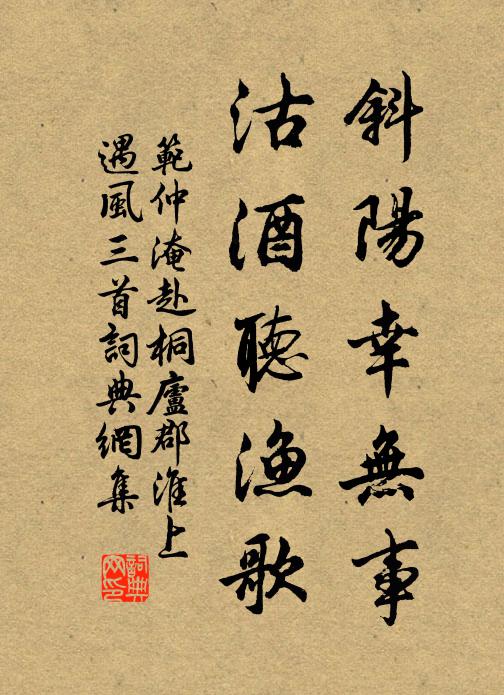 斜陽幸無事
沽酒聽漁歌
範仲淹赴桐廬郡淮上
遇風三首詞典網集
詞典
网印